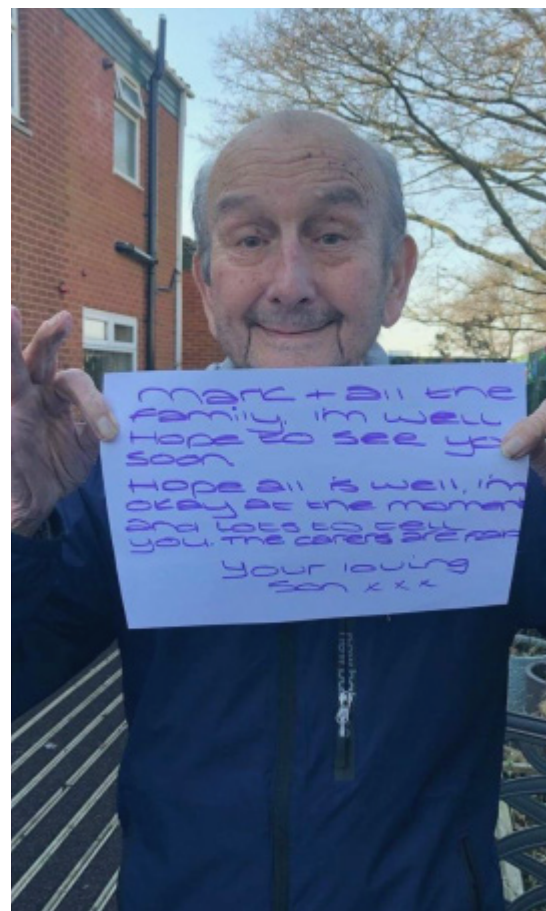 Mark + all the
family, I'm well
Hope to see yo
soon
Hope all is well, I'm
okay at the momen
and lots to tell
you. The carers are
Your loving
Son x x x